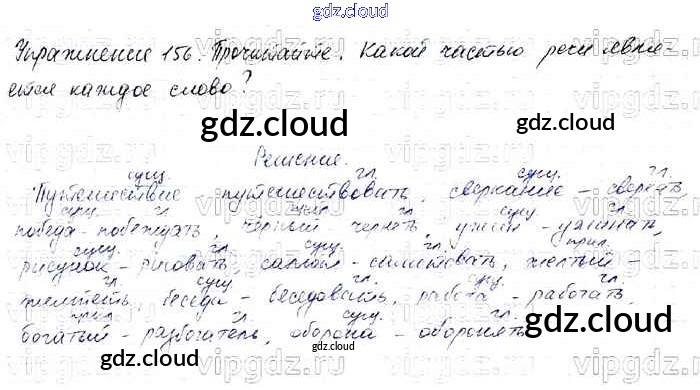 gdz.cloud
Упражнение 156. Прочитайте. Какой частью речи явля-
ется каждое слово?
gdz.cloud gdz.cloud
Решение.
сущ. гл. сущ. гл.
Путешествие - путешествовать, сверкание - сверкать,
сущ. гл. гл. сущ. гл.
победа - побеждать, чёрный - чернеть, ужин - ужинать,
сущ. гл. сущ. гл. прил.
рисунок - рисовать, салют - салютовать, желтый -
гл. сущ. гл. сущ. гл.
желтеть, беседа - беседовать, работа - работать,
прил. гл. сущ. гл.
богатый - разбогатель, оборона - оборонять.
gdz.cloud gdz.cloud
gdz.cloud